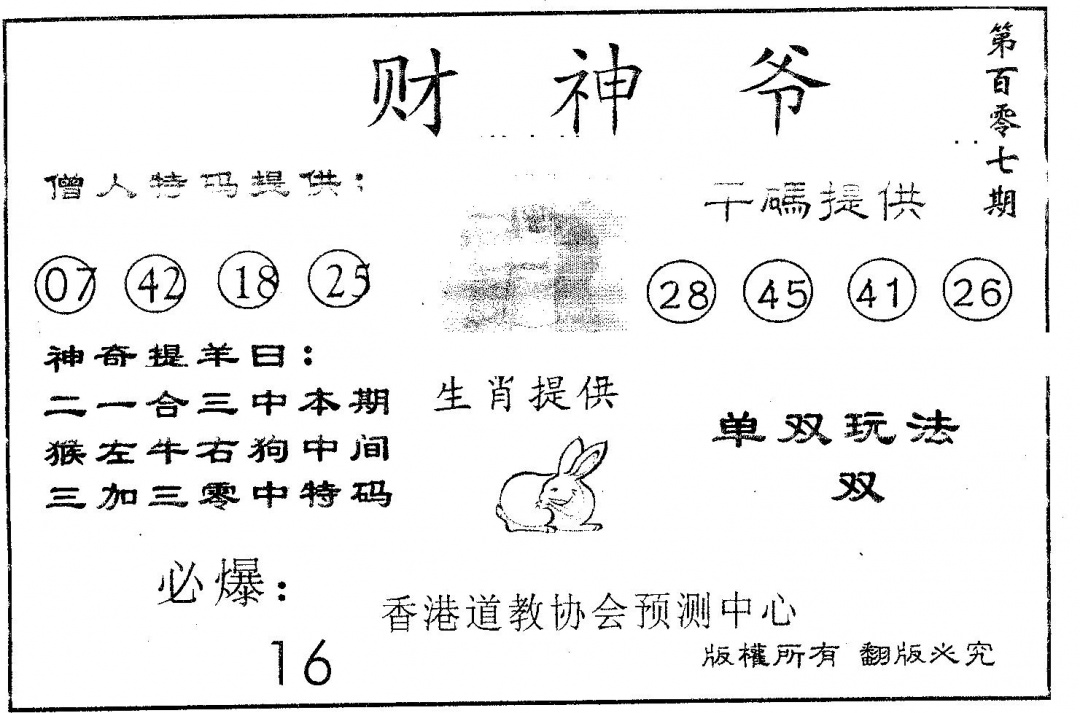 财神爷
第百零七期
僧人特码提供：
07 42 18 25
干碼提供
28 45 41 26
神奇提羊曰：
二一合三中本期
猴左牛右狗中间
三加三零中特码
生肖提供
单双玩法
双
必爆：
16
香港道教协会预测中心
版權所有 翻版必究